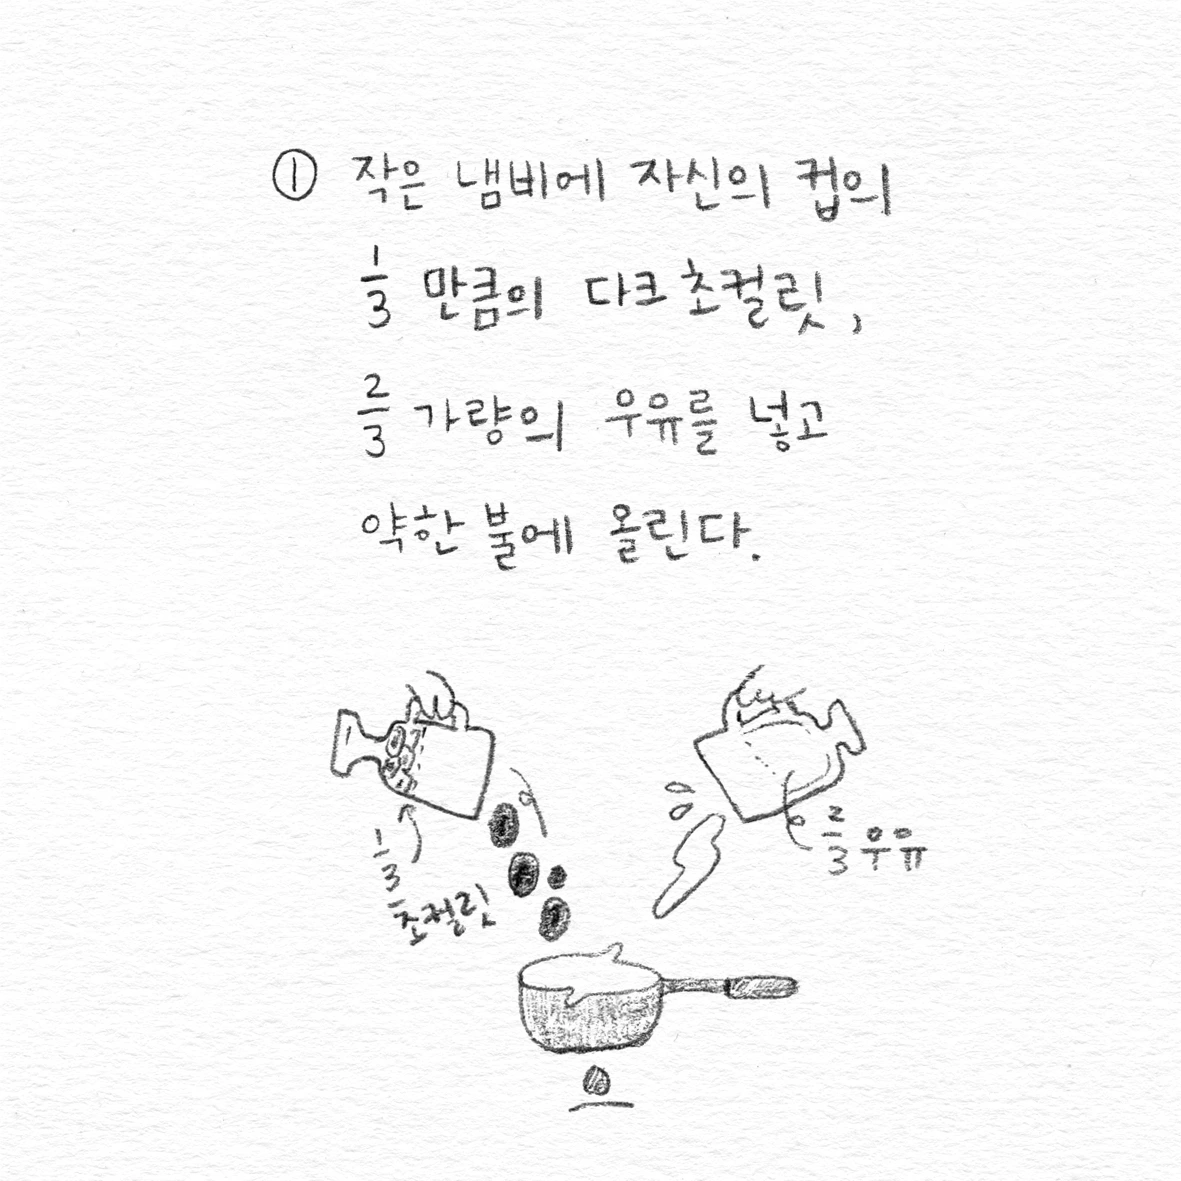 ① 작은 냄비에 자신의 컵의
1/3 만큼의 다크 초컬릿,
2/3 가량의 우유를 넣고
약한 불에 올린다.
1/3
초컬릿
2/3 우유